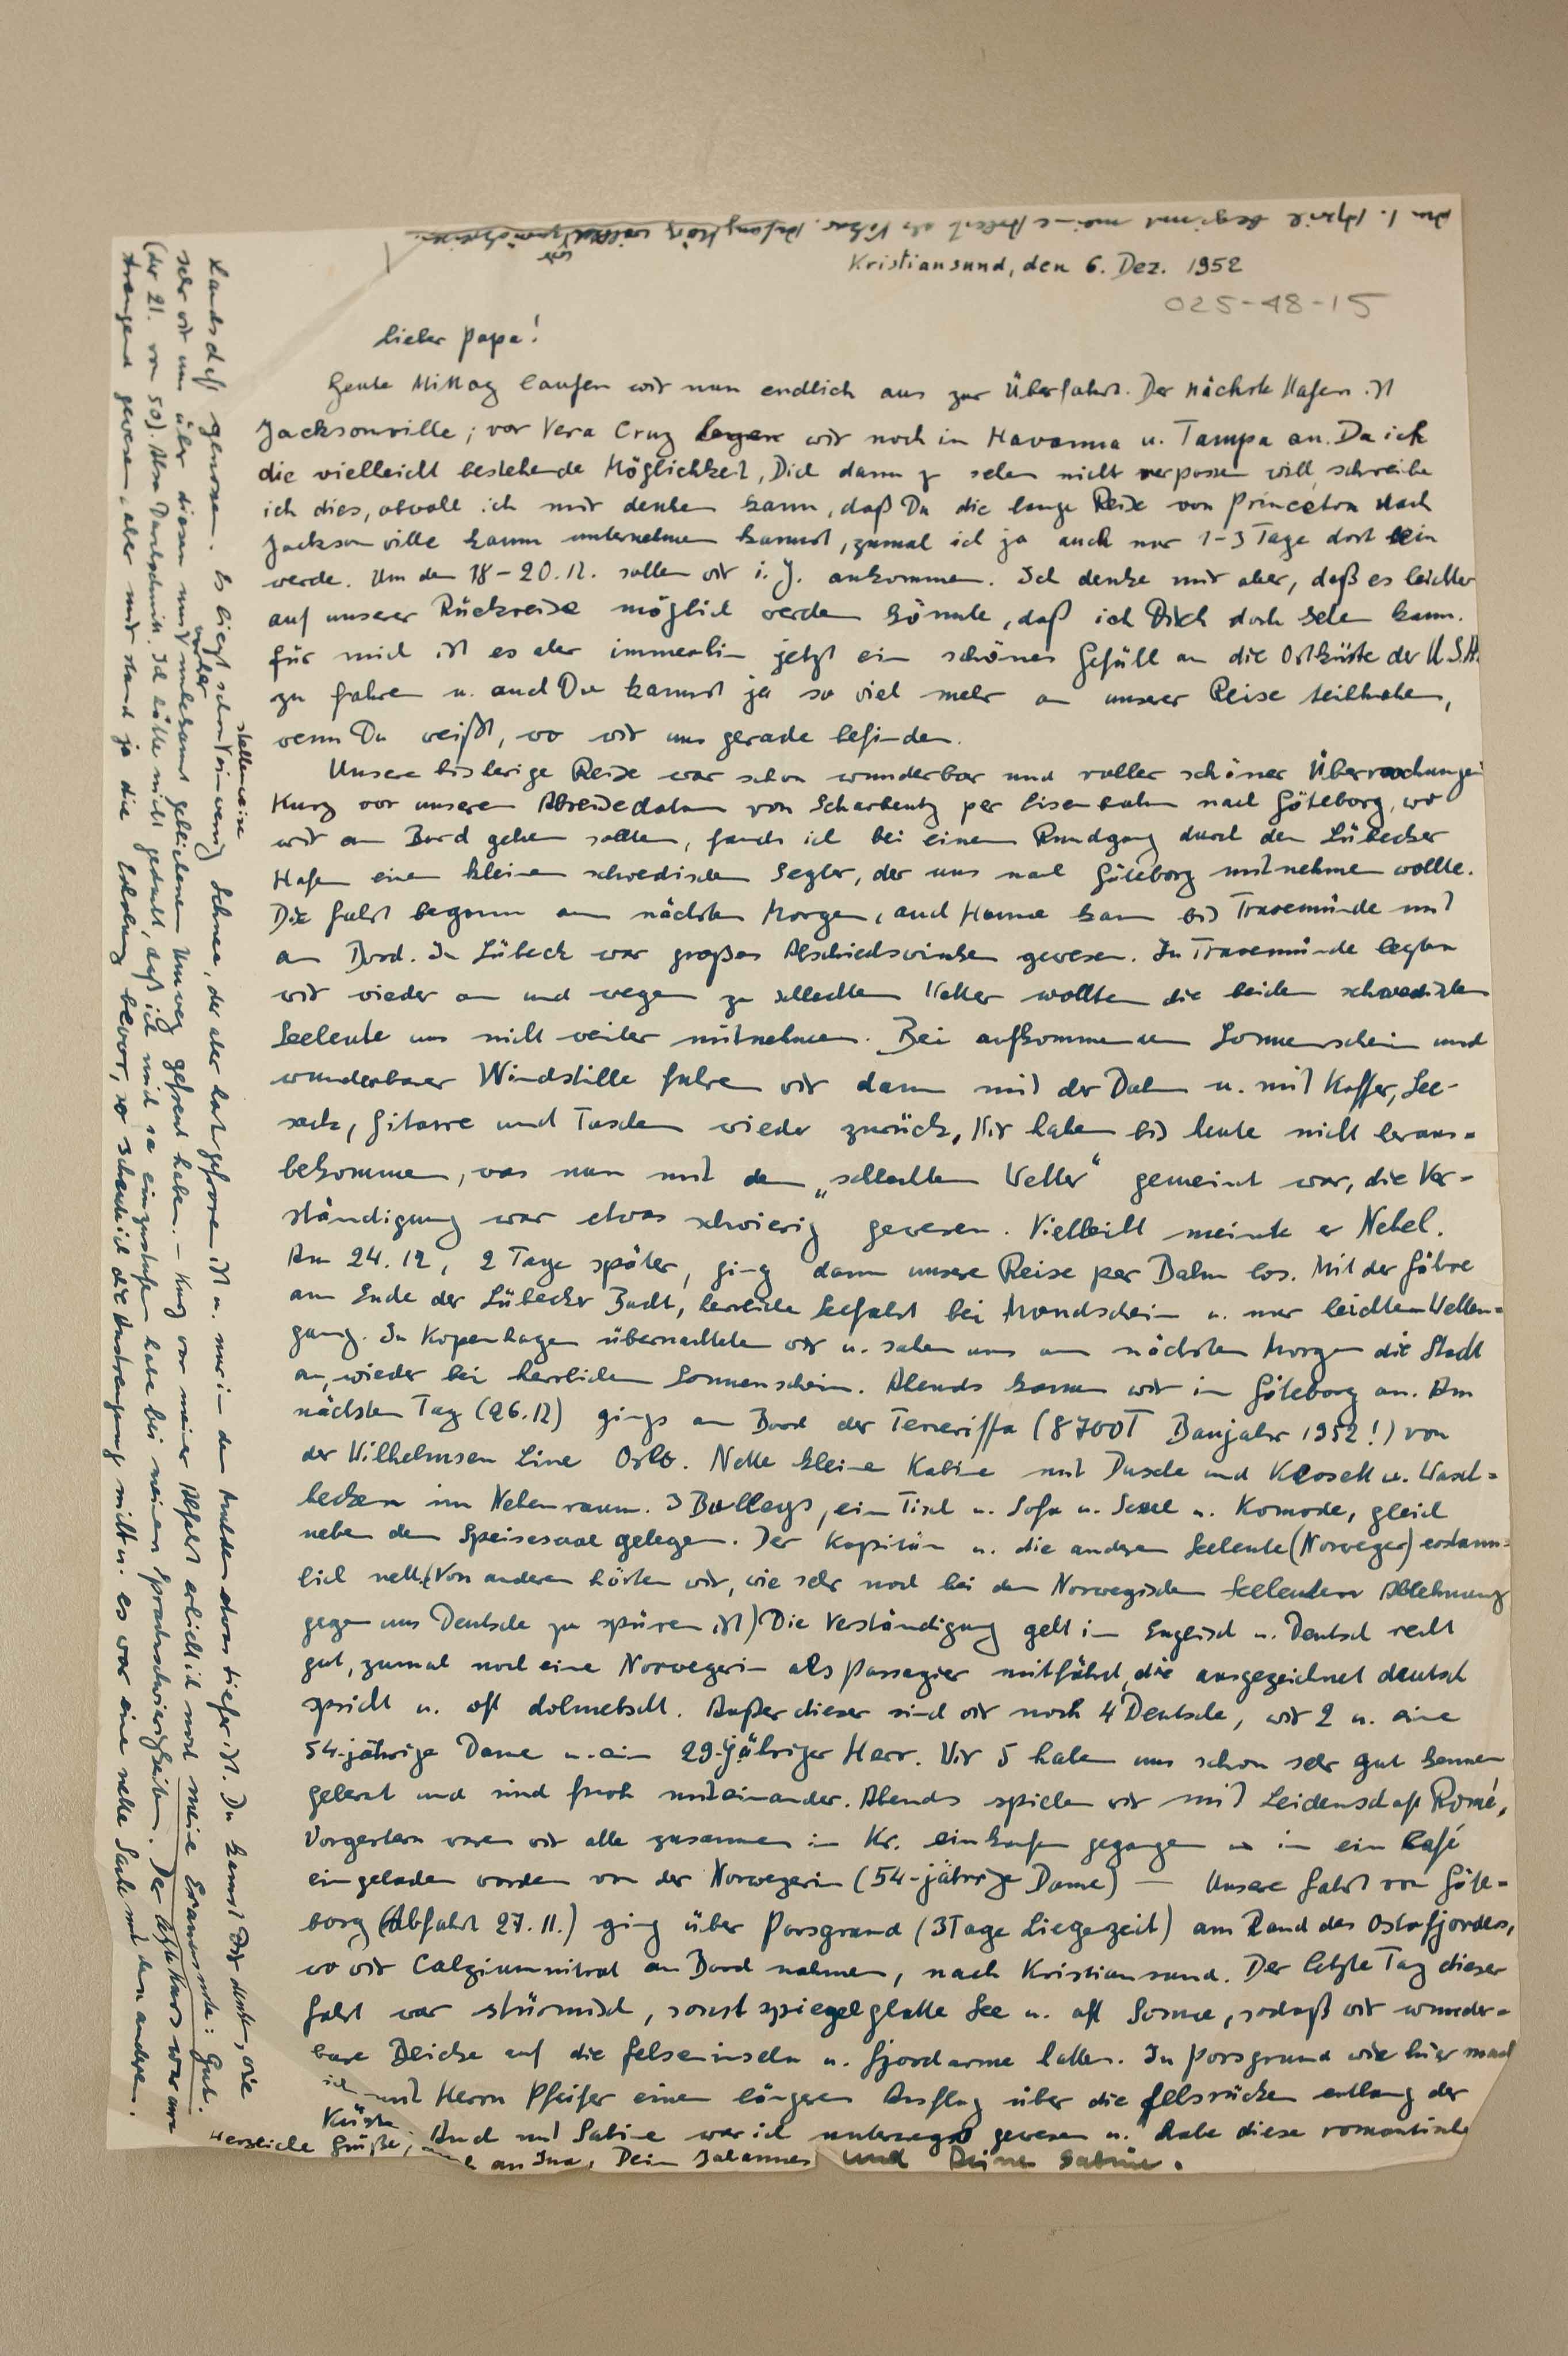 Kristiansund, den 6. Dez. 1952
025-48-15
Lieber Papa!
Heute Mittag laufen wir nun endlich aus zur Überfahrt. Der nächste Hafen ist
Jacksonville; vor Vera Cruz legen wir noch in Havanna u. Tampa an. Da ich
die vielleicht bestehende Möglichkeit, Dich dann z sehen nicht verpassen will, schreibe
ich dies, obwohl ich mir denken kann, daß Du die lange Reise von Princeton nach
Jacksonville kaum unternehmen kannst, zumal ich ja auch nur 1-3 Tage dort sein
werde. Um den 18-20.12. sollen wir i. J. ankommen. Ich denke mir aber, daß es leichter
auf unserer Rückreise möglich werden könnte, daß ich Dich doch sehen kann.
für mich ist es aber immerhin jetzt ein schönes Gefühl an die Ostküste der U.S.A.
zu fahren u. auch Du kannst ja so viel mehr an unserer Reise teilhaben,
wenn Du weißt, wo wir uns gerade befinden.
Unsere bisherige Reise war schon wunderbar und voller schöner Überraschungen
Kurz vor unserem Abreisedatum von Scharbeutz per Eisenbahn nach Göteborg, wo
wir an Bord gehen sollten, fand ich bei einem Rundgang durch den Lübecker
Hafen einen kleinen schwedischen Segler, der uns nach Göteborg mitnehmen wollte.
Die Fahrt begann am nächsten Morgen, auch Hanne kam bis Travemünde mit
an Bord. In Lübeck war großes Abschiedswinken gewesen. In Travemünde legten
wir wieder an und wegen zu schlechtem Wetter wollten die beiden schwedischen
Seeleute uns nicht weiter mitnehmen. Bei aufkommenden Sonnenschein und
wunderbarer Windstille fuhren wir dann mit der Bahn u. mit Koffer, See-
sack, Gitarre und Taschen wieder zurück. Wir haben bis heute nicht heraus=
bekommen, was nun mit dem „schlechten Wetter" gemeint war, die Ver-
ständigung war etwas schwierig gewesen. Vielleicht meinte er Nebel.
Am 24.12, 2 Tage später, ging dann unsere Reise per Bahn los. Mit der Fähre
am Ende der Lübecker Bucht, herrliche Seefahrt bei Mondschein u. nur leichtem Wellen=
gang. In Kopenhagen übernachteten wir u. sahen uns am nächsten Morgen die Stadt
an, wieder bei herrlichem Sonnenschein. Abends kamen wir in Göteborg an. Am
nächsten Tag (26.12) gings an Bord der Teneriffa (8700T Baujahr 1952!) von
der Wilhelmsen Line Oslo. Nette kleine Kabine mit Dusche und Klosett u. Wasch=
becken im Nebenraum. 3 Bulleys, ein Tisch u. Sofa u. Sessel u. Komode, gleich
neben dem Speisesaal gelegen. Der Kapitän u. die anderen Seeleute (Norweger) erstaun=
lich nett. (Von anderen hörten wir, wie sehr noch bei den Norwegischen Seeleuten Ablehnung
gegen uns Deutsche zu spüren ist) Die Verständigung geht in Englisch u. Deutsch recht
gut, zumal noch eine Norwegerin als Passagier mitfährt, die ausgezeichnet deutsch
spricht u. oft dolmetscht. Außer dieser sind wir noch 4 Deutsche, wir 2 u. eine
54-jährige Dame u. ein 29-jähriger Herr. Wir 5 haben uns schon sehr gut kennen
gelernt und sind froh miteinander. Abends spielen wir mit Leidenschaft Romé,
Vorgestern waren wir alle zusammen in Kr. einkaufen gegangen u. in ein Café
eingeladen worden von der Norwegerin (54-jährige Dame) — Unsere Fahrt von Göte=
borg (Abfahrt 27.11.) ging über Porsgrund (3 Tage Liegezeit) am Rand des Oslofjordes,
wo wir Calziumnitrat an Bord nahmen, nach Kristiansund. Der letzte Tag dieser
Fahrt war stürmisch, sonst spiegelglatte See u. oft Sonne, sodaß wir wunder=
bare Blicke auf die Felseninseln u. Fjordarme hatten. In Porsgrund wie hier mach
ich mit Herrn Pfeifer einen längeren Ausflug über die Felsrücken entlang der
Küste. Auch mit Sabine war ich unterwegs gewesen u. habe diese romantische
Landschaft genossen. Es liegt schon stellenweise ein wenig Schnee, der aber hart gefroren ist u. nur in den Mulden etwas tiefer ist. Du kannst Dir denken, wie
sehr wir uns über diesen uns vorher unbekannt gebliebenen Umweg gefreut haben. — Kurz vor meiner Abfahrt erhielt ich noch meine Examensnote: Gut.
(der 21. von 50). Also Durchschnitt. Ich hätte nicht gedacht, daß ich mich so einzustufen habe bei meinen Sprachschwierigkeiten. Der letzte Kurs war an=
strengend gewesen, aber mir stand ja die Erholung bevor, so scheute ich die Anstrengung nicht u. es war eine nette Sache mit den anderen.
Am 1. April beginnt meine Arbeit als Vikar. Anfang März wollen wir zurück sein.
Herzliche Grüße, auch an Ina, Dein Johannes und Deine Sabine.